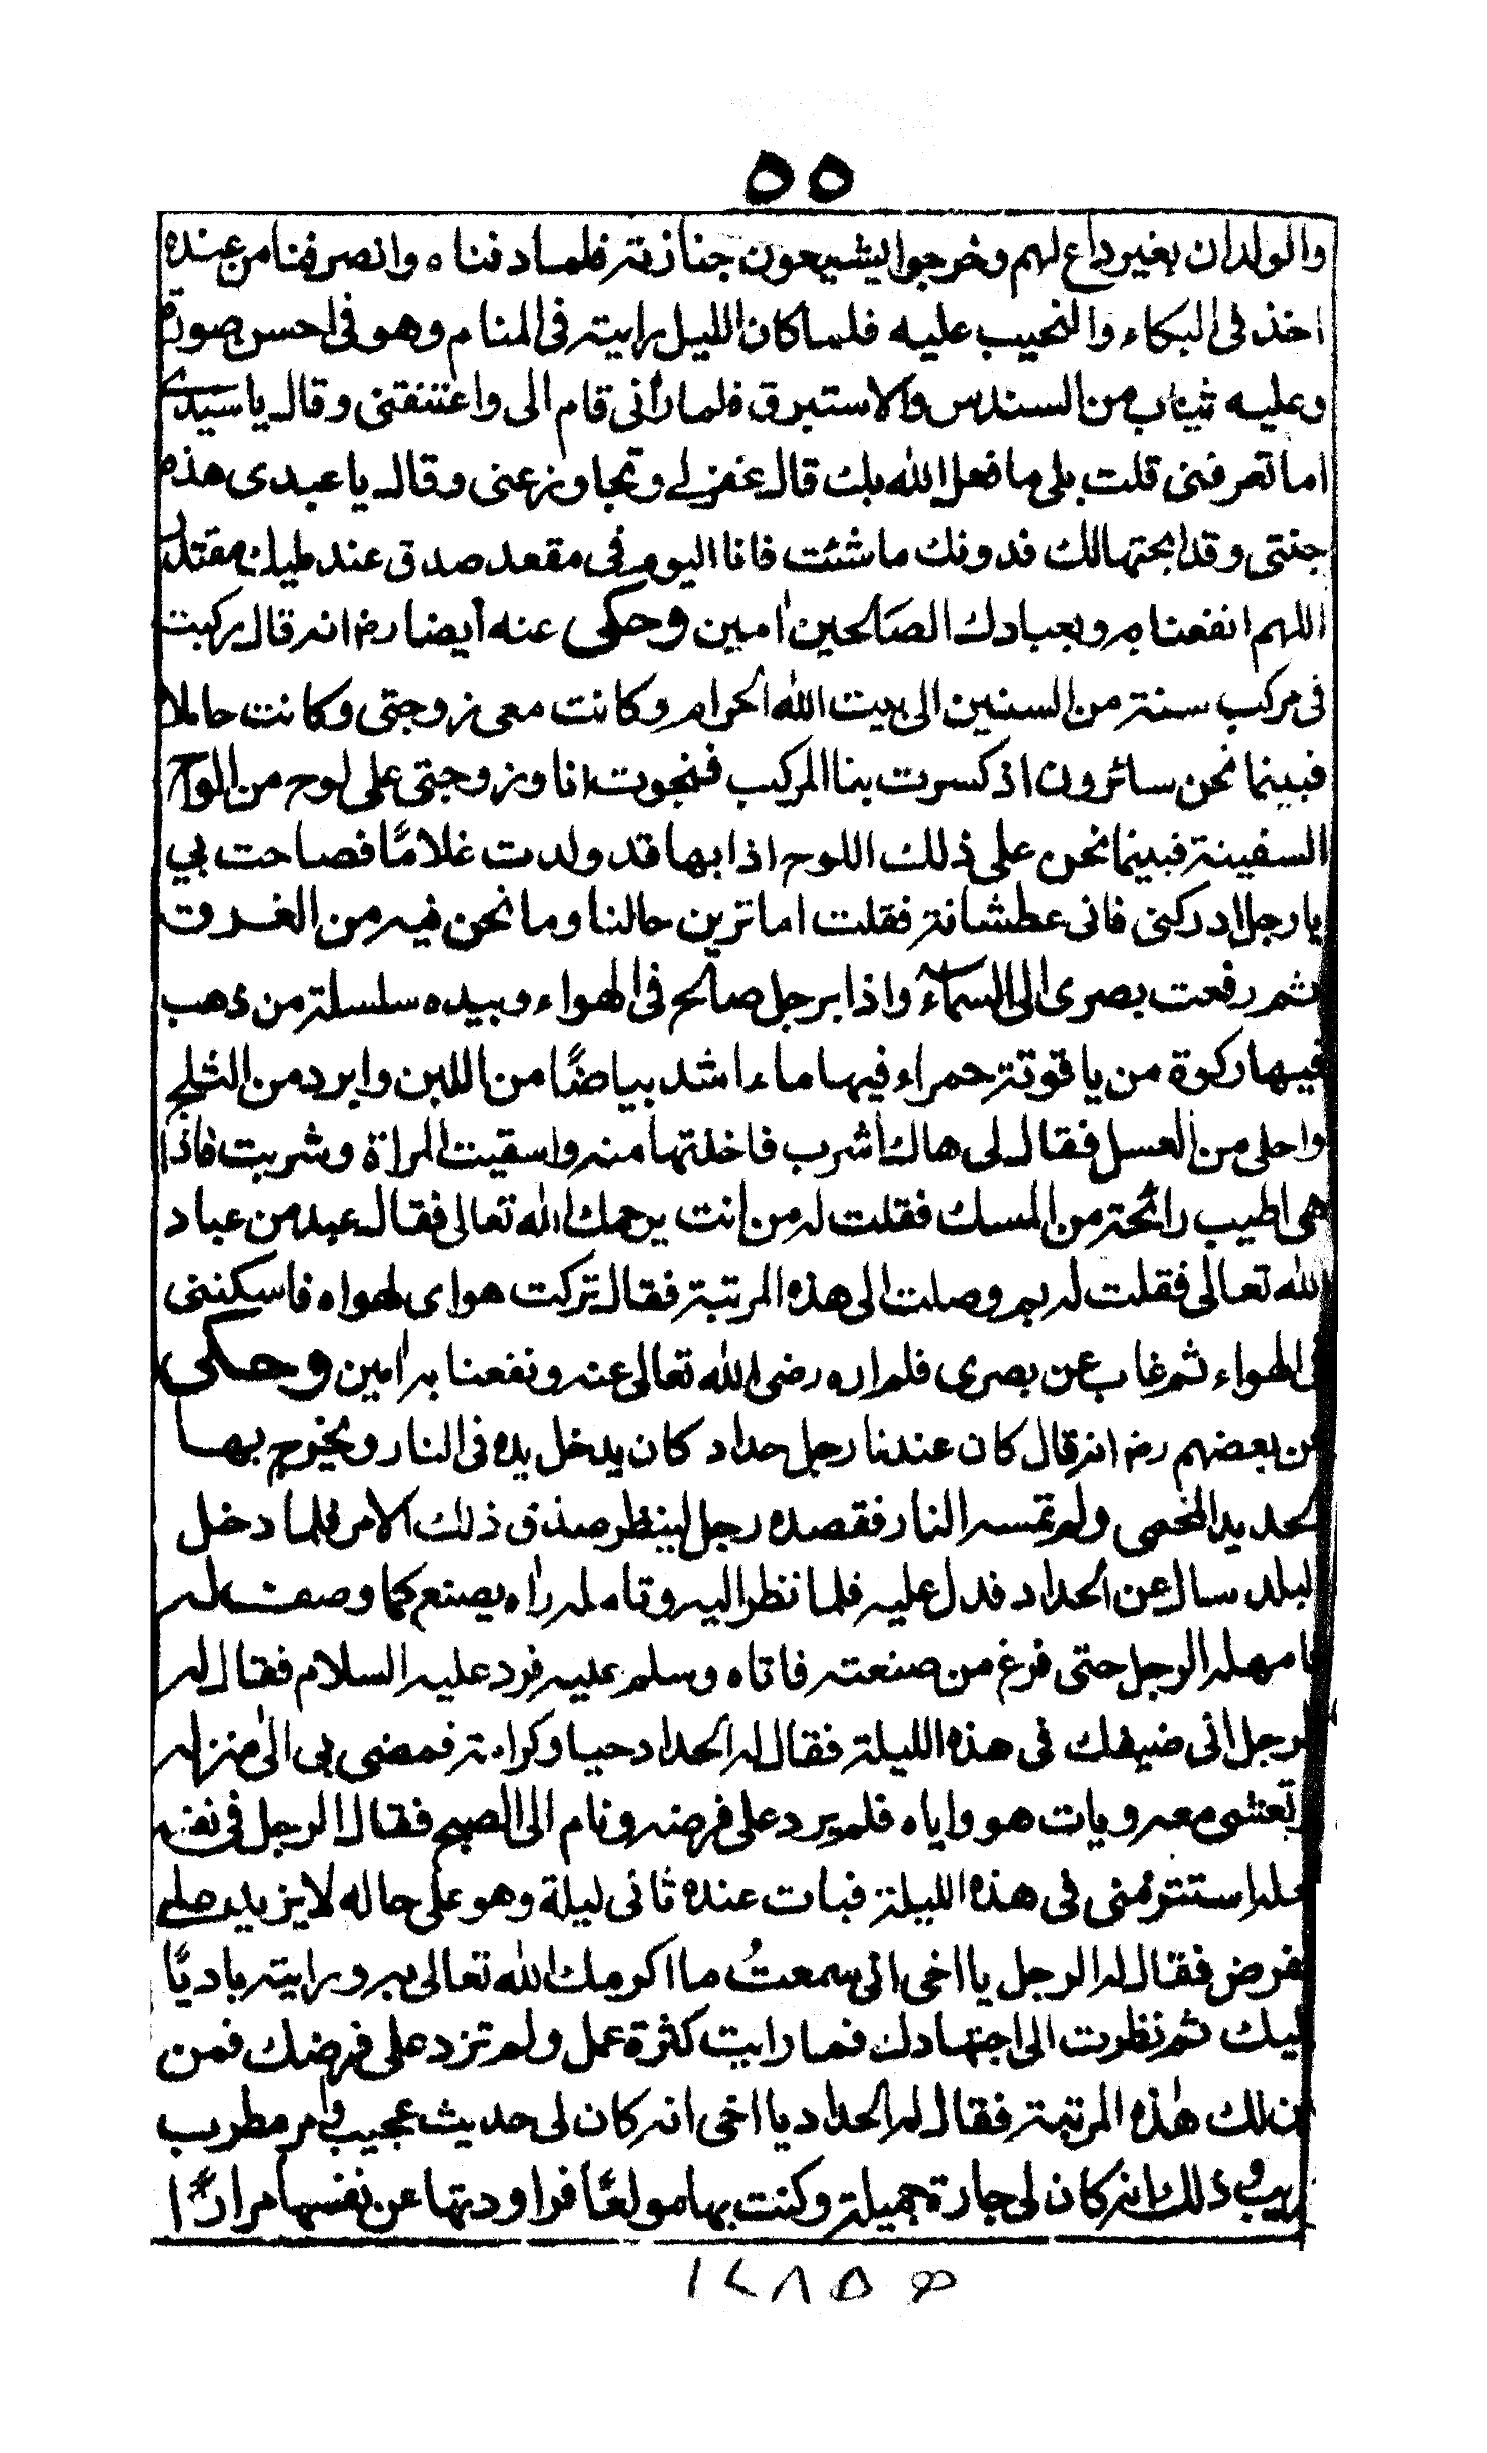 ٥٥
والولدان بغير داع لهم وخرجوا يشيعون جنازته فلما دفناه وانصرفنا من عنده
اخذ فى البكاء والنحيب عليه فلما كان الليل رايته فى المنام وهو فى احسن صورة
وعليه ثياب من السندس والاستبرق فلما رأنى قام الى واعتنقنى وقال يا سيدى
اما تعرفنى قلت بلى ما فعل الله بك قال غفر لى وتجاوز عنى وقال يا عبدى هذه
جنتى وقد ابحتها لك فدونك ما شئت فانا اليوم فى مقعد صدق عند مليك مقتدر
اللهم انفعنا به وبعبادك الصالحين امين وحكى عنه أيضا رضه انه قال ركبت
فى مركب سنة من السنين الى بيت الله الحرام وكانت معى زوجتى وكانت حاملا
فبينما نحن سائرون اذ كسرت بنا المركب فنجوت انا وزوجتى على لوح من الواح
السفينة فبينما نحن على ذلك اللوح اذا بها قد ولدت غلامًا فصاحت بي
يا رجل ادركنى فانى عطشانة فقلت اما ترين حالنا وما نحن فيه من الغرق
ثم رفعت بصرى الى السمآء واذا برجل صالح فى الهواء وبيده سلسلة من ذهب
فيها ركوة من ياقوتة حمراء فيها ماء اشد بياضًا من اللبن وابرد من الثلج
واحلى من العسل فقال لى هاك اشرب فاخذتها منه واسقيت المراة وشربت فاذا
هى اطيب رائحة من المسك فقلت له من انت يرحمك الله تعالى فقال عبد من عباد
الله تعالى فقلت له بم وصلت الى هذه المرتبة فقال تركت هواى لهواه فاسكننى
فى الهواء ثم غاب عن بصرى فلم اره رضى الله تعالى عنه ونفعنا به امين وحكى
عن بعضهم رضه انه قال كان عندنا رجل حداد كان يدخل يده فى النار ويخرج بها
الحديد المحمى ولم تمسه النار فقصده رجل لينظر صدق ذلك الامر فلما دخل
البلد سال عن الحداد فدل عليه فلما نظر اليه وتامله راه يصنع كما وصف له
فامهله الرجل حتى فرغ من صنعته فاتاه وسلم عليه فرد عليه السلام فقال له
الرجل انى ضيفك فى هذه الليلة فقال له الحداد حبا وكرامة فمضى بى الى منزله
وتعشى معه وبات هو واياه فلم يرد على فرضه ونام الى الصبح فقال الرجل فى نفسه
لعله استتر منى فى هذه الليلة فبات عنده ثانى ليلة وهو على حاله لا يزيد على
الفرض فقال له الرجل يا اخى انى سمعتُ ما اكرمك الله تعالى به ورايته باديًا
عليك ثم نظرت الى اجتهادك فما رايت كثرة عمل ولم تزد على فرضك فمن
اين لك هذه المرتبة فقال له الحداد يا اخى انه كان لى حديث عجيب وامر مطرب
غريب وذلك انه كان لى جارة جميلة وكنت بها مولعًا فراودتها عن نفسها مرارًا